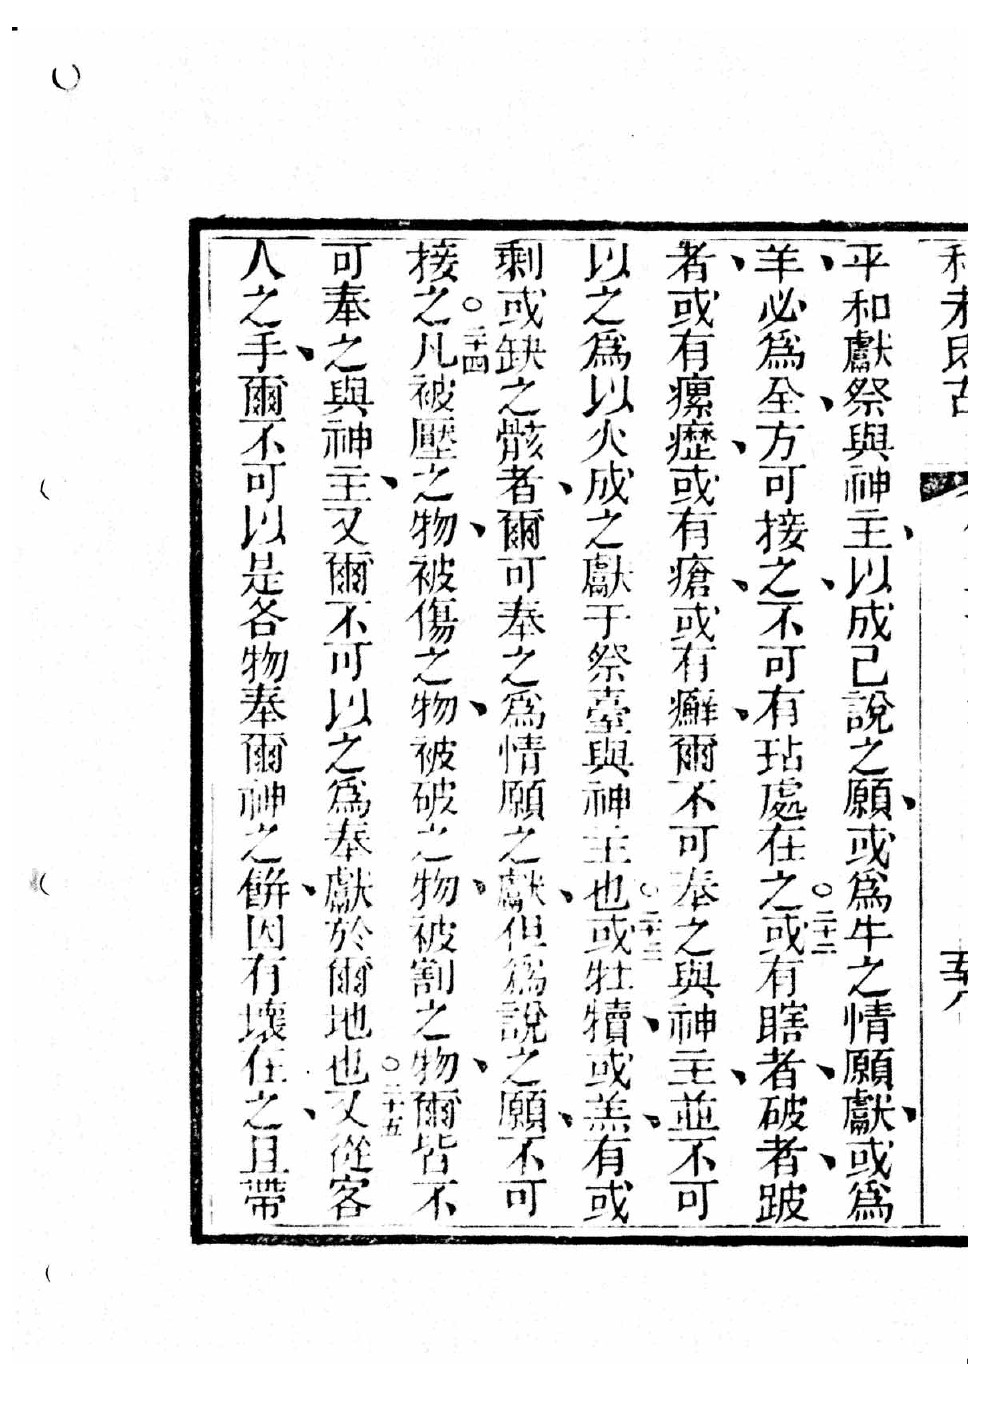 平和獻祭與神主、以成己說之願、或爲牛之情願獻、或爲
羊、必爲全、方可接之、不可有玷處在之○二十二或有瞎者、破者、跛
者、或有瘰癧、或有瘡、或有癬、爾不可奉之與神主、並不可
以之爲以火成之獻于祭臺與神主也○二十三或牡犢、或羔、有或
剩或缺之骸者、爾可奉之爲情願之獻、但爲說之願、不可
接之○二十四凡被壓之物、被傷之物、被破之物、被割之物、爾皆不
可奉之與神主、又爾不可以之爲奉獻於爾地也○二十五又從客
人之手、爾不可以是各物奉爾神之餅、因有壞在之、且帶